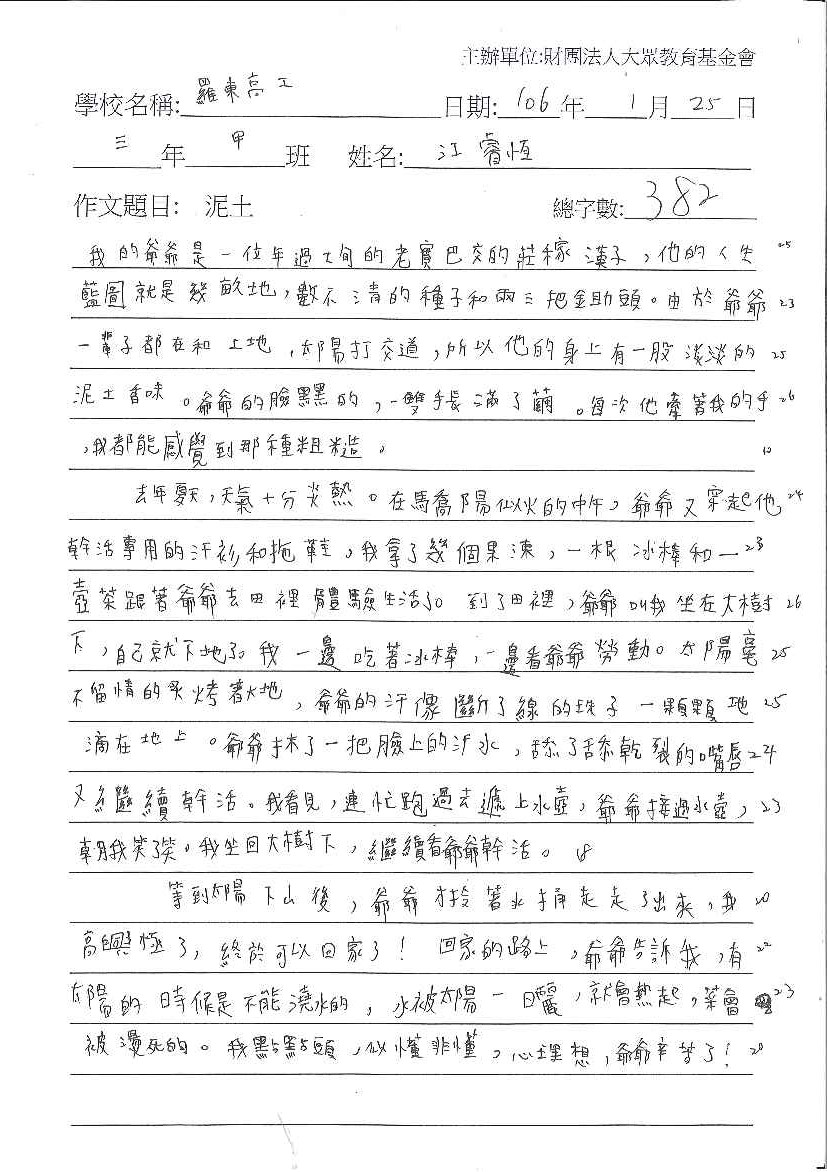 主辦單位:財團法人大眾教育基金會
學校名稱: 羅東高工 日期: 106 年 1 月 25 日
三 年 甲 班 姓名: 江睿恆
作文題目: 泥土 總字數: 382
我的爺爺是一位年過七旬的老實巴交的莊稼漢子,他的人生 25
藍圖就是幾畝地,數不清的種子和兩三把鋤頭。由於爺爺 23
一輩子都在和土地,太陽打交道,所以他的身上有一股淡淡的 25
泥土香味。爺爺的臉黑黑的,一雙手長滿了繭。每次他牽著我的手 26
,我都能感覺到那種粗糙。 10
去年夏天,天氣十分炎熱。在驕陽似火的中午,爺爺又穿起他 24
幹活專用的汗衫和拖鞋,我拿了幾個果凍,一根冰棒和一 23
壺茶跟著爺爺去田裡體驗生活了。到了田裡,爺爺叫我坐在大樹 26
下,自己就下地了。我一邊吃著冰棒,一邊看爺爺勞動。太陽毫 25
不留情的炙烤著大地,爺爺的汗像斷了線的珠子一顆顆地 25
滴在地上。爺爺抹了一把臉上的汗水,舔了舔乾裂的嘴唇 24
又繼續幹活。我看見,連忙跑過去遞上水壺,爺爺接過水壺, 23
朝我笑了笑。我坐回大樹下,繼續看爺爺幹活。 18
等到太陽下山後,爺爺才拎著水桶走走了出來,我 20
高興極了,終於可以回家了!回家的路上,爺爺告訴我,有 22
太陽的時候是不能澆水的,水被太陽一曬,就會熱起,菜會 23
被燙死的。我點點頭,似懂非懂,心理想,爺爺辛苦了! 20